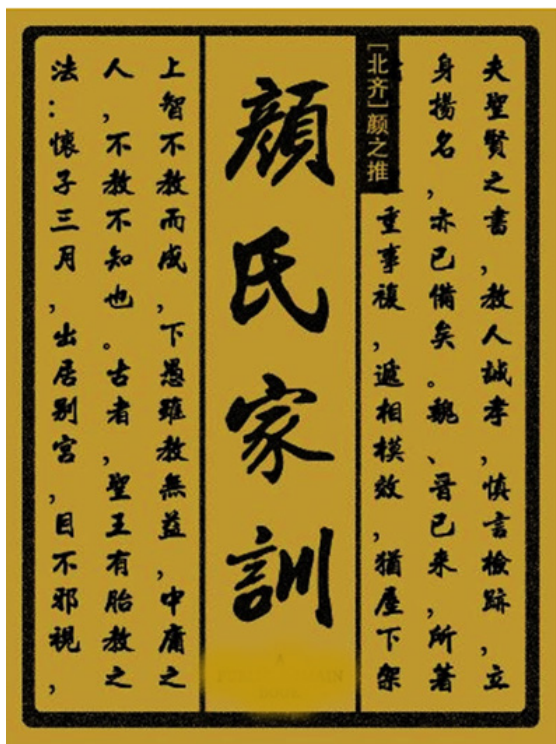 夫聖賢之書，教人誠孝，慎言檢跡，立
身揚名，亦已備矣。魏、晉已来，所著
重事複，遞相模效，猶屋下架
[北齐]颜之推
顏氏家訓
上智不教而成，下愚雖教無益，中庸之
人，不教不知也。古者，聖王有胎教之
法：懷子三月，出居别宫，目不邪視，